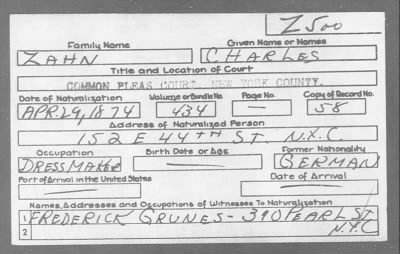 Z500
Family Name Given Name or Names
ZAHN CHARLES
Title and Location of Court
COMMON PLEAS COURT, NEW YORK COUNTY.
Date of Naturalization Volume or Bundle No. Page No. Copy of Record No.
APR. 29, 1874 434 — 58
Address of Naturalized Person
152 E 44TH ST. N.Y.C.
Occupation Birth Date or Age Former Nationality
DRESS MAKER — GERMAN
Port of Arrival in the United States Date of Arrival
— —
Names, Addresses and Occupations of Witnesses To Naturalization
1 FREDERICK GRUNES - 390 PEARL ST.
2 N.Y.C